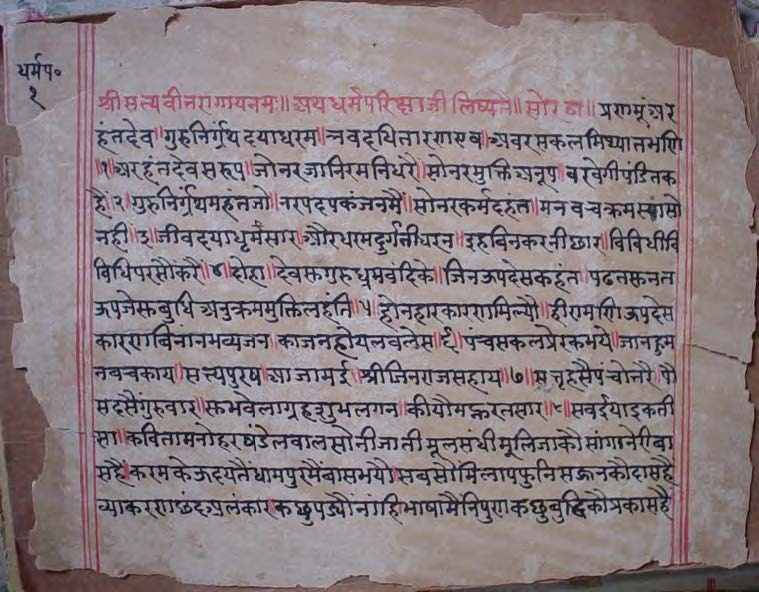 धर्मप०
१
श्रीसत्यवीतरागायनमः॥ अथधर्मपरिक्षाजी लिष्यते॥ सोरठा॥ प्रणमूं अर
हंतदेव॥ गुरुनिर्ग्रंथदयाधरम॥ भवदधितारणएव॥ अवरसकलमिथ्यातभणि
॥१॥ अरहंतदेवसरूप॥ जोनरजानिरमनिधरै॥ सोनरमुक्तिअनूप॥ वरवेगीपंडितक
हैं॥२॥ गुरुनिर्ग्रंथमहंतजो॥ नरपदपकंजनमै॥ सोनरकर्मदहंत॥ मनवचक्रम
नही॥३॥ जीवदयाधर्मसार॥ औरधरमदुर्गतीधरन॥ इहबिनकरनीछार॥ विविधीवि
विधिपरसौंकरैं॥४॥ दोहा॥ देवसुगुरुध्रमवंदिके॥ जिनउपदेसकहंत॥ पढतसुनत
ऊपजेसुबुधि अनुक्रममुक्तिलहंति॥५॥ होनहारकारणमिल्यौ॥ हीरामणिऊपदेस
कारणविनानभव्यजन॥ काजनहोयलवलेस॥६॥ पंचसकलप्रेरकभये॥ जानहुम
नवचकाय॥ सत्त्यपुरष श्रीजिनराजसहाय॥७॥ पौ
सदसैंगुरुवार॥ सुभवेलाग्रहशुभलगन॥ सवईयाइकती
सा॥ कवितामनोहरषंडेलवालसोनीजाती मूलसंघीमूलिजाकौसांगानेरीवा
सहै॥ करमकेऊदयतैंधामपुरमैंवासभयौ॥ सबसौंमिलापफुनिसज्जनकौदासहै
व्याकरणछंदअलंकारकछुपढ्यौनांहि॥ भाषामैंनिपुणकछुबुद्धिकौप्रकासहै